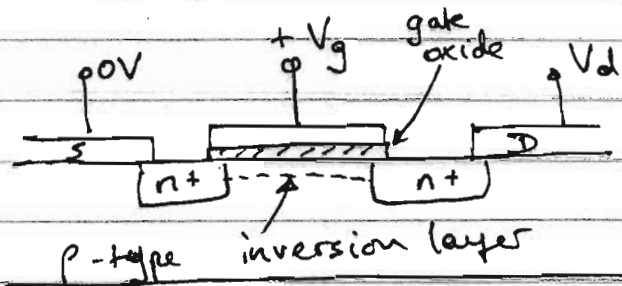 + Vg
gate
oxide
0V
Vd
S
D
n+
n+
p-type
inversion layer